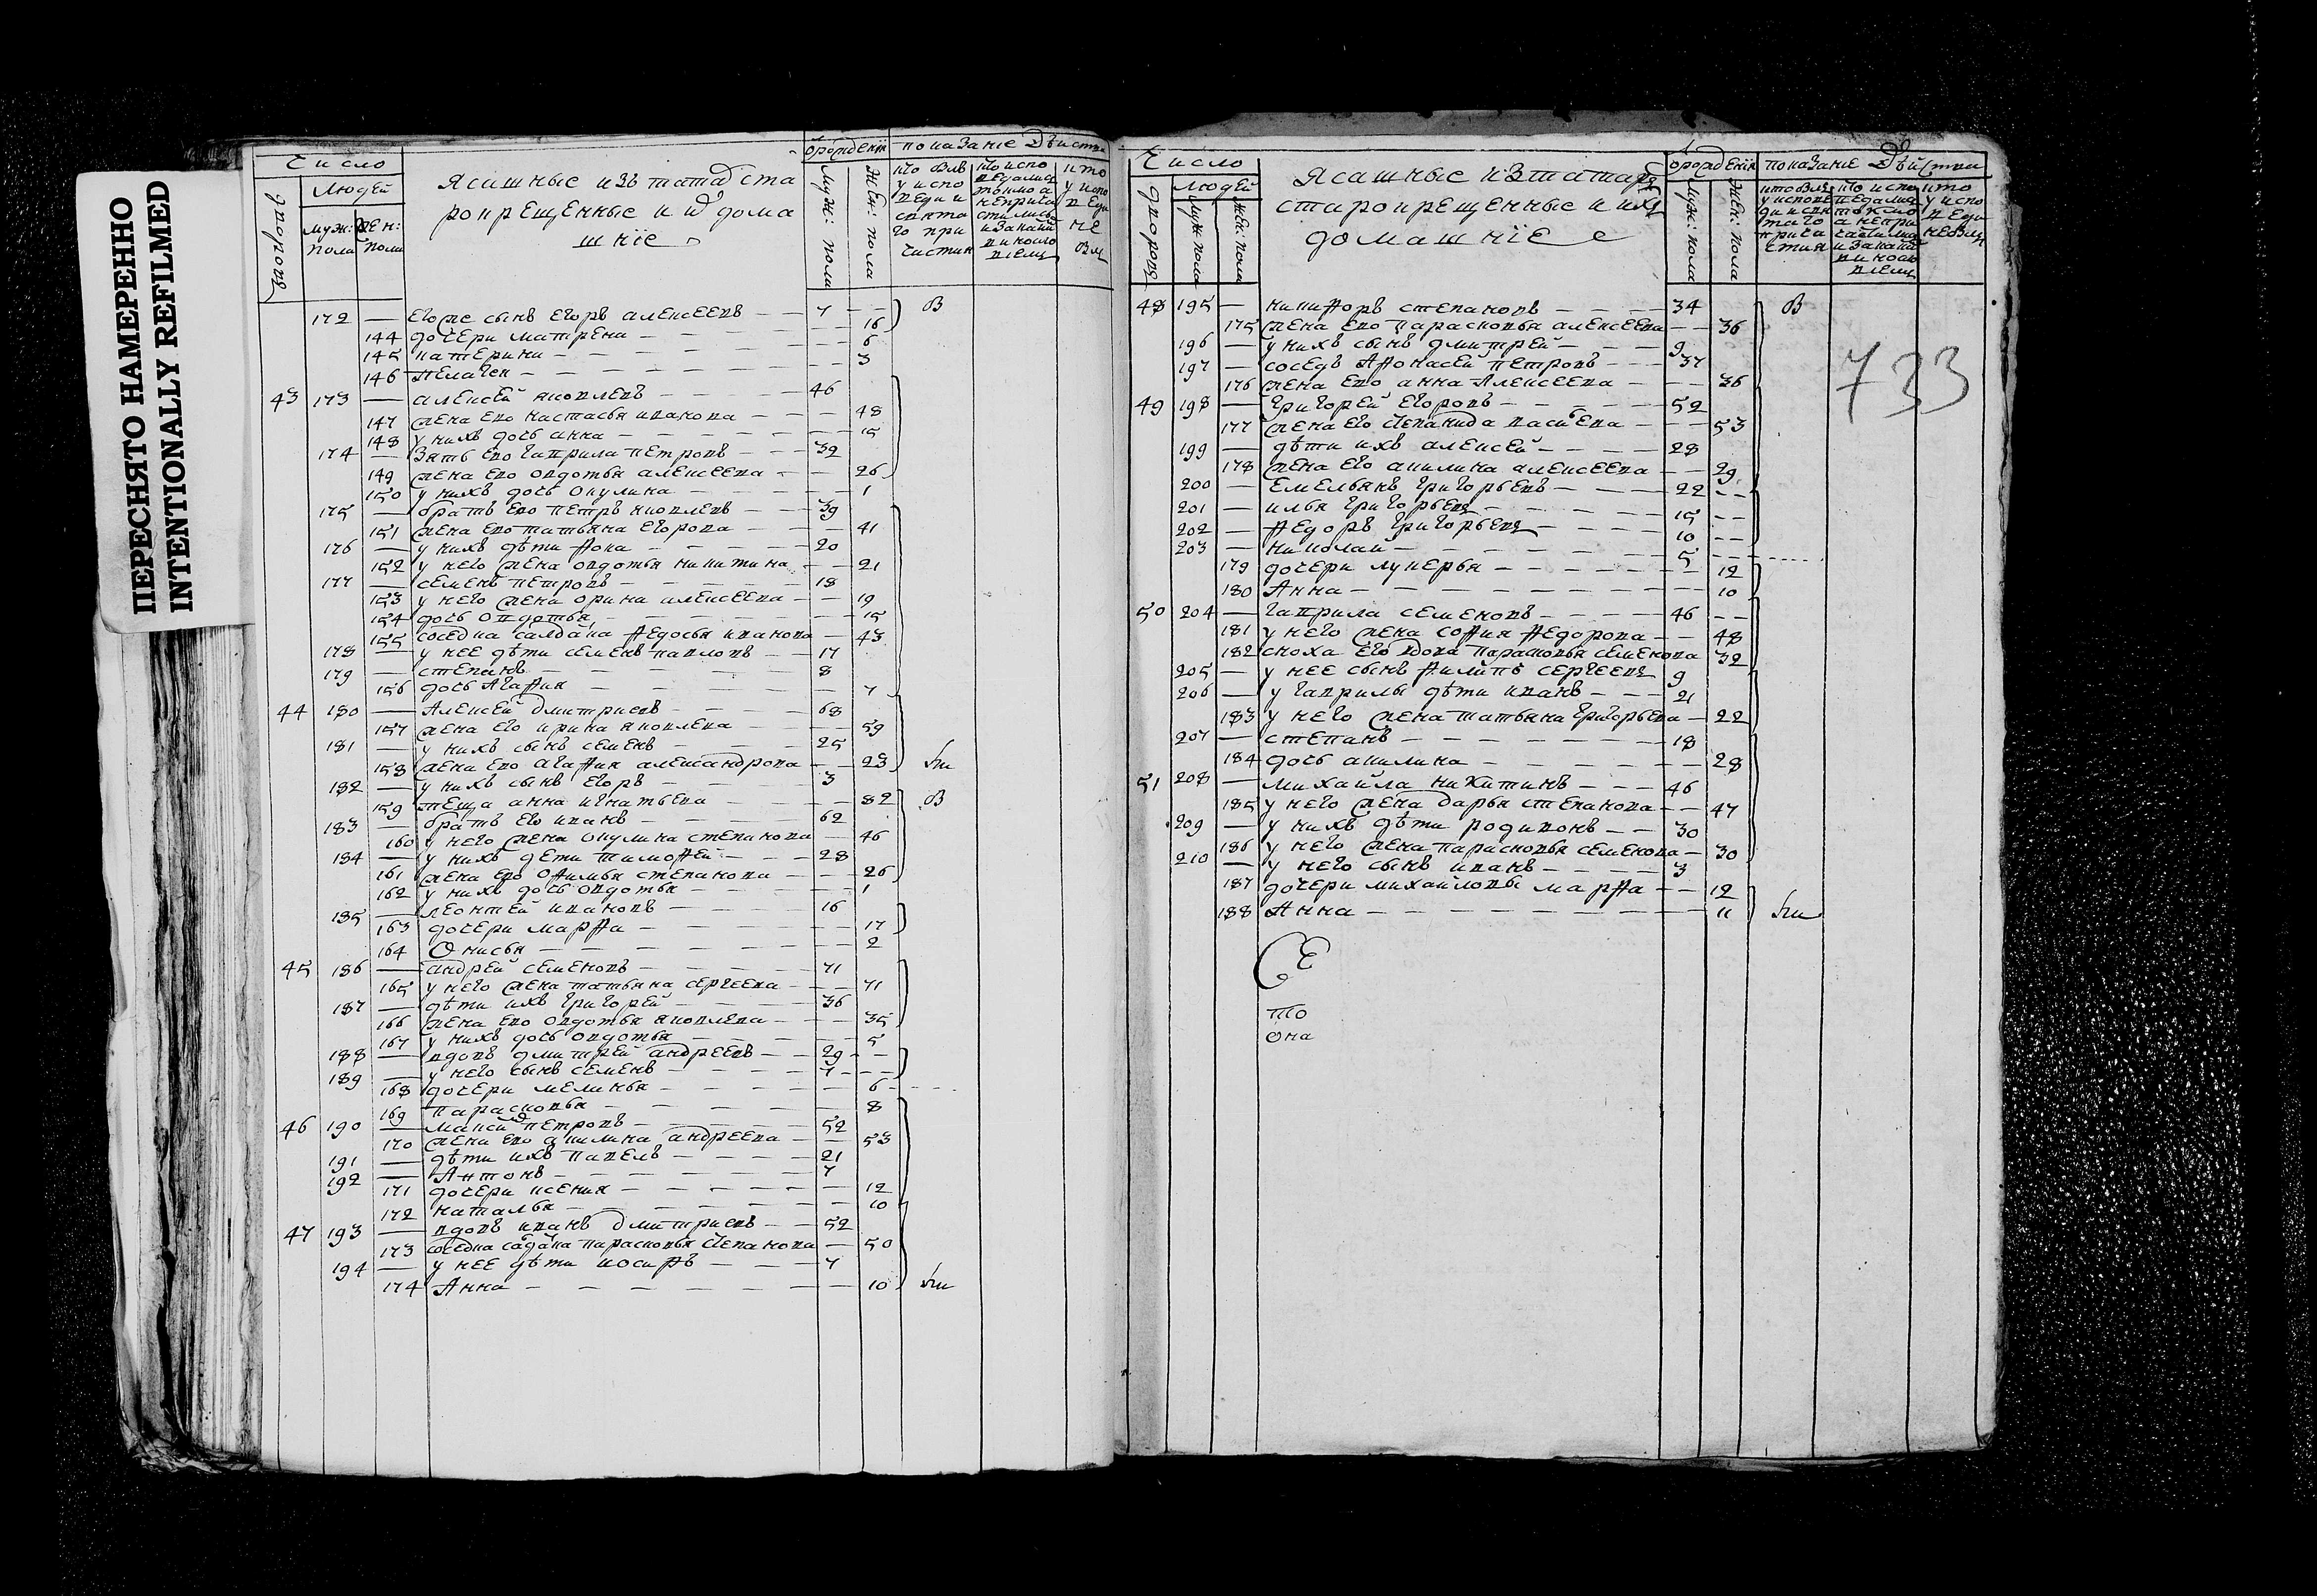 ПЕРЕСНЯТО НАМЕРЕННО
INTENTIONALLY REFILMED
Число
Людей
муж: пола
жен: пола
Ясашные изъ татаръ ста
рокрещенные и ихъ дома
шніе
орожденіи
муж: пола
жен: пола
показаніе действа
172 — Егоже сынъ Егоръ алексеевъ — 7 В
144 дочери матрена — 16
145 катерина — 6
146 пелагея — 3
43 173 — алексей яковлевъ — 46
147 жена ево настасья иванова — 48
148 у нихъ дочь анна — 15
174 — Зять ево гаврила петровъ — 32
149 жена ево овдотья алексеева — 26
150 у нихъ дочь окулина — 1
175 — братъ ево петръ яковлевъ — 39
151 жена ево татьяна егорова — 41
176 — у нихъ дѣти фока — 20
152 у него жена овдотья никитина — 21
177 — семенъ петровъ — 18
153 у него жена орина алексеева — 19
154 дочь овдотья — 15
155 соседка салдатка федосья иванова — 43
178 — у нее дѣти семенъ павловъ — 17
179 — степанъ — 8
156 дочь Агафия — 7
44 180 — Алексей дмитриевъ — 68
157 жена его ирина яковлева — 59
181 — у нихъ сынъ семенъ — 25
158 жена ево агафия александрова — 23
182 — у нихъ сынъ егоръ — 3
159 теща анна игнатьева — 82 В
183 — братъ его иванъ — 62
160 у него жена окулина степанова — 46
184 — у нихъ дети тимофей — 28
161 жена ево офимья степанова — 26
162 у нихъ дочь овдотья — 1
185 — леонтей ивановъ — 16
163 дочери марфа — 17
164 Онисья — 2
45 186 — андрей семеновъ — 71
165 у него жена татьяна сергеева — 71
187 — дѣти ихъ григорей — 36
166 жена ево овдотья яковлева — 35
167 у нихъ дочь овдотья — 5
188 — вдовъ дмитрей андреевъ — 29
189 — у него сынъ семенъ — 7
168 дочери меланья — 6
169 парасковья — 8
46 190 — максимъ петровъ — 52
170 жена ево акилина андреева — 53
191 — дѣти ихъ павелъ — 21
192 — Антонъ — 7
171 дочери ксения — 12
172 наталья — 10
47 193 — вдовъ иванъ дмитриевъ — 52
173 соседка салдатка парасковья степанова — 50
194 — у нее дѣти иосифъ — 7
174 Анна — 10
Число
Людей
муж: пола
жен: пола
Ясашные изъ татаръ
старокрещенные и ихъ
домашніе
орожденіи
муж: пола
жен: пола
показаніе действи
48 195 — никифоръ степановъ — 34 В
175 жена ево парасковья алексеева — 36
196 — у нихъ сынъ дмитрей — 9
197 — соседъ Афонасей петровъ — 37
176 жена ево анна Алексеева — 36
49 198 — григорей егоровъ — 52
177 жена его степанида васильева — 53
199 — дѣти ихъ алексей — 28
178 жена его акилина алексеева — 29
200 — Емельянъ григорьевъ — 22
201 — илья григорьевъ — 15
202 — федоръ григорьевъ — 10
203 — николай — 5
179 дочери лукерья — 12
180 Анна — 10
50 204 — гаврила семеновъ — 46
181 у него жена софия федорова — 48
182 сноха его вдова парасковья семенова 32
205 — у нее сынъ филипъ сергеевъ 9
206 — у гаврилы дѣти иванъ — 21
183 у него жена татьяна григорьева — 22
207 — степанъ — 18
184 дочь акилина — 28
51 208 — михайла никитинъ — 46
185 у него жена дарья степанова — 47
209 — у нихъ дѣти родионъ — 30
186 у него жена парасковья семенова — 30
210 — у него сынъ иванъ — 3
187 дочери михайловы марфа — 12
188 Анна — 11
то
она
733